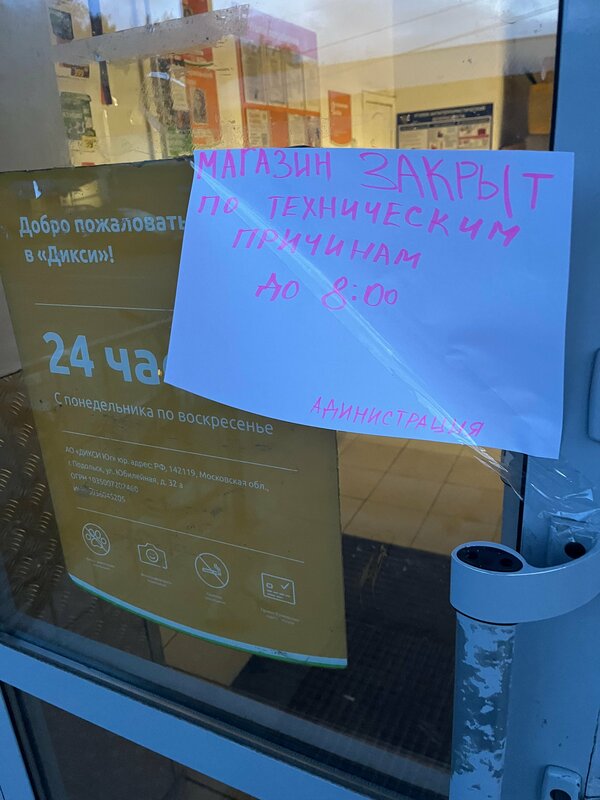 МАГАЗИН ЗАКРЫТ
ПО ТЕХНИЧЕСКИМ
ПРИЧИНАМ
ДО 8:00
АДИНИСТРАЦИЯ
Добро пожаловать
в «Дикси»!
24 час
С понедельника по воскресенье
АО «ДИКСИ Юг» юр. адрес: РФ, 142119, Московская обл.,
г. Подольск, ул. Юбилейная, д. 32 а
ОГРН 1035007202460
ИНН 5036045205